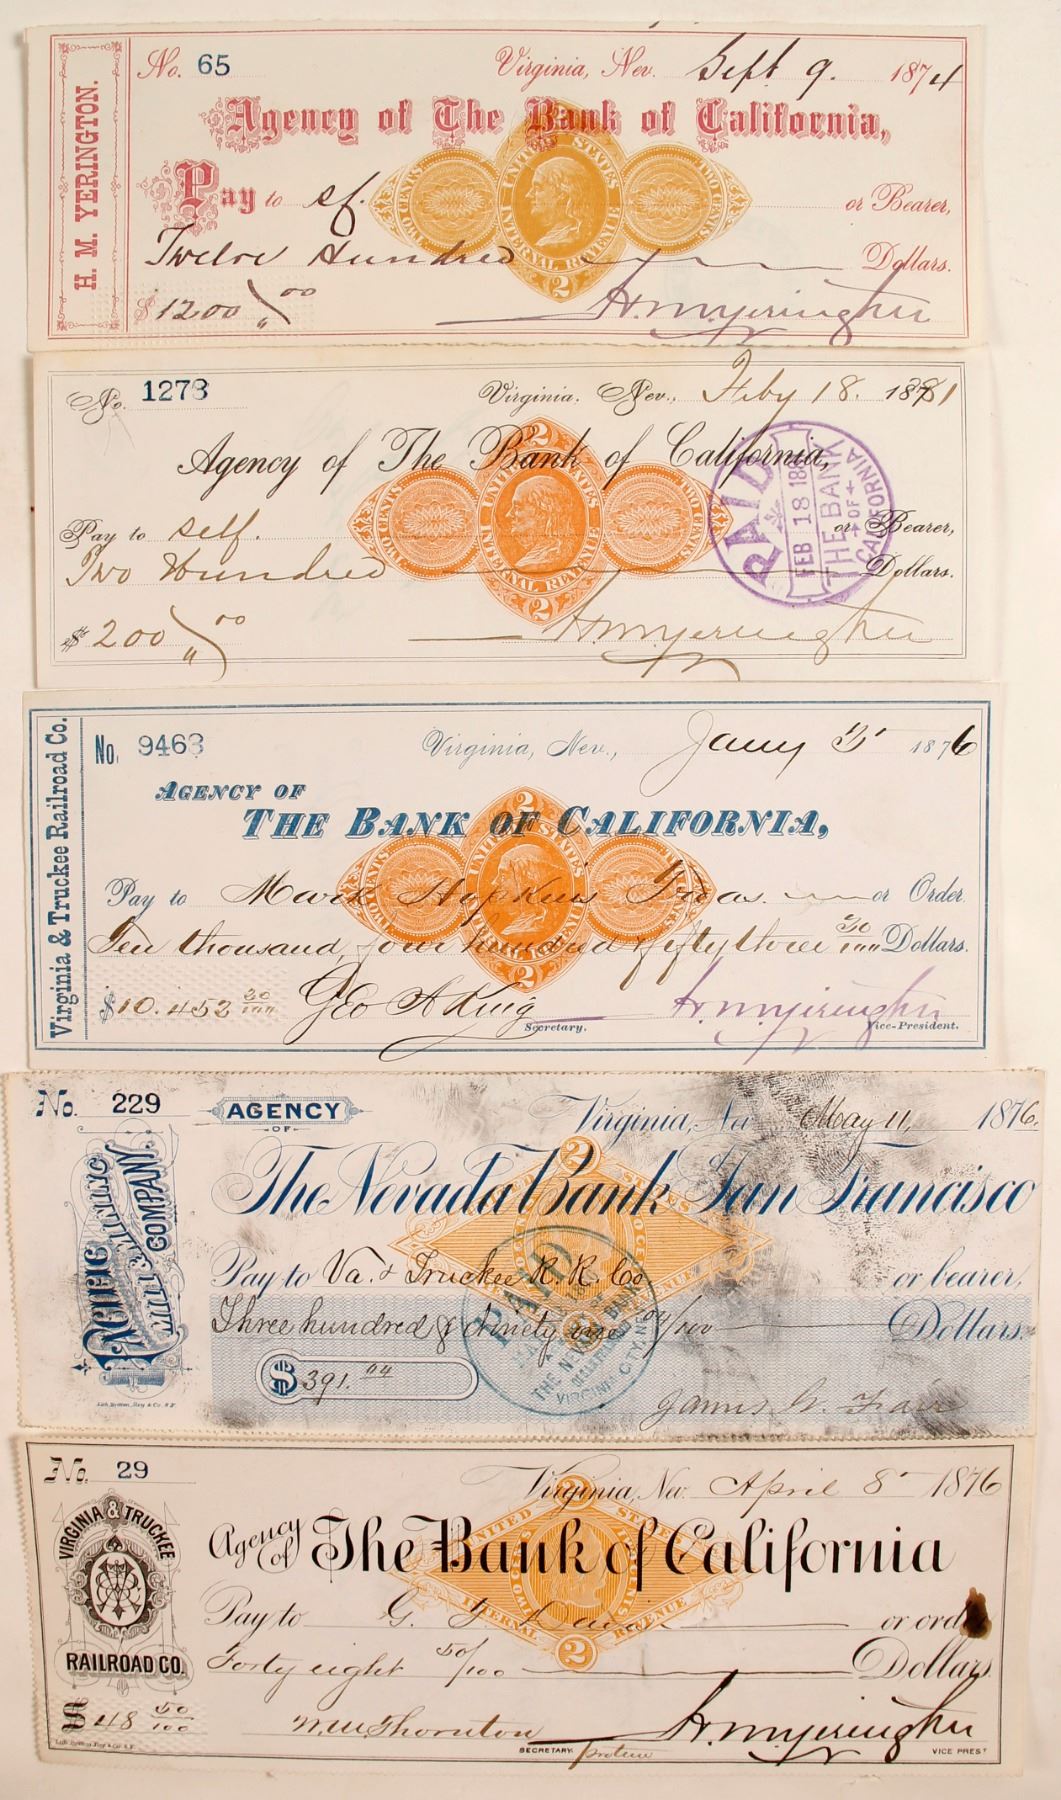 H. M. YERINGTON.
No. 65 Virginia, Nev. Sept. 9. 1874
Agency of The Bank of California,
Pay to sf. or Bearer,
Twelve Hundred Dollars.
$1200 00
H. M. Yerington
UNITED STATES
INTERNAL REVENUE
TWO CENTS TWO CENTS
2
No. 1273 Virginia, Nev., Feby 18. 1881
Agency of The Bank of California,
Pay to self. or Bearer,
Two Hundred Dollars.
$200 00
H. M. Yerington
2
UNITED STATES
INTERNAL REVENUE
TWO CENTS TWO CENTS
2
PAID
FEB 18
THE BANK
OF
CALIFORNIA
Virginia & Truckee Railroad Co.
No. 9463 Virginia, Nev., Jany 3 1876
AGENCY OF
THE BANK OF CALIFORNIA,
Pay to Mark Hopkins Treas. or Order
Ten thousand, four hundred fifty three 30/100 Dollars.
$10.453 30/100 Geo A King H. M. Yerington
Secretary. Vice-President.
2
UNITED STATES
INTERNAL REVENUE
TWO CENTS
2
No. 229 AGENCY
OF
Virginia, Nev May 11, 1876.
The Nevada Bank San Francisco
PACIFIC MILL & MINING COMPANY.
Pay to Va. & Truckee R. R. Co or bearer,
Three hundred & Ninety one 04/100 Dollars.
$391.04
Lith. Britton, Rey & Co. S.F.
2
REVENUE
PAID
THE NEVADA BANK
VIRGINIA CITY, NEV
No. 29 Virginia, Nev. April 8 1876
VIRGINIA & TRUCKEE
RAILROAD CO.
Agency of The Bank of California
Pay to G. or order
Forty eight 50/100 Dollars
$48 50/100 W. W. Thornton H. M. Yerington
SECRETARY protem VICE PREST
Lith. Britton, Rey & Co. S.F.
2
UNITED STATES
INTERNAL REVENUE
2